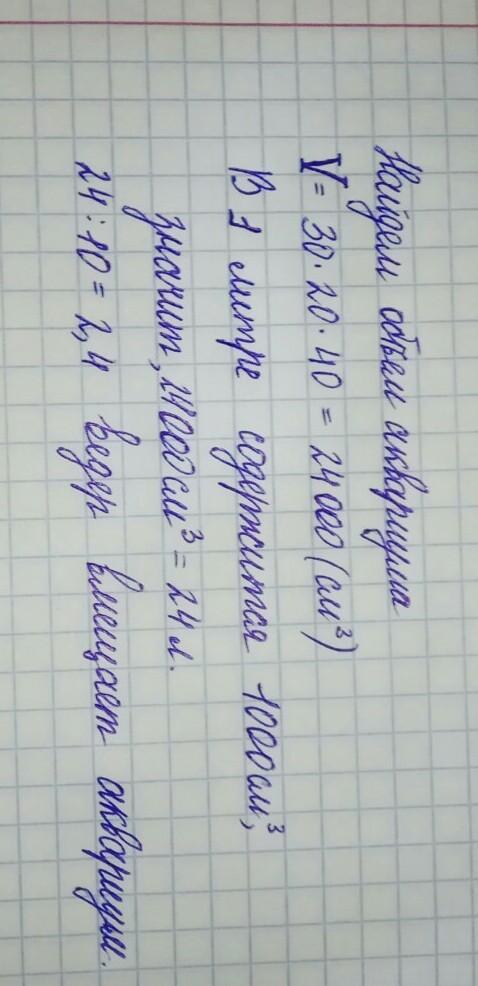 Найдем объем аквариума
V = 30 · 20 · 40 = 24 000 (см³)
В 1 литре содержится 1000 см³,
значит, 24000 см³ = 24 л.
24 : 10 = 2,4 ведер вмещает аквариум.